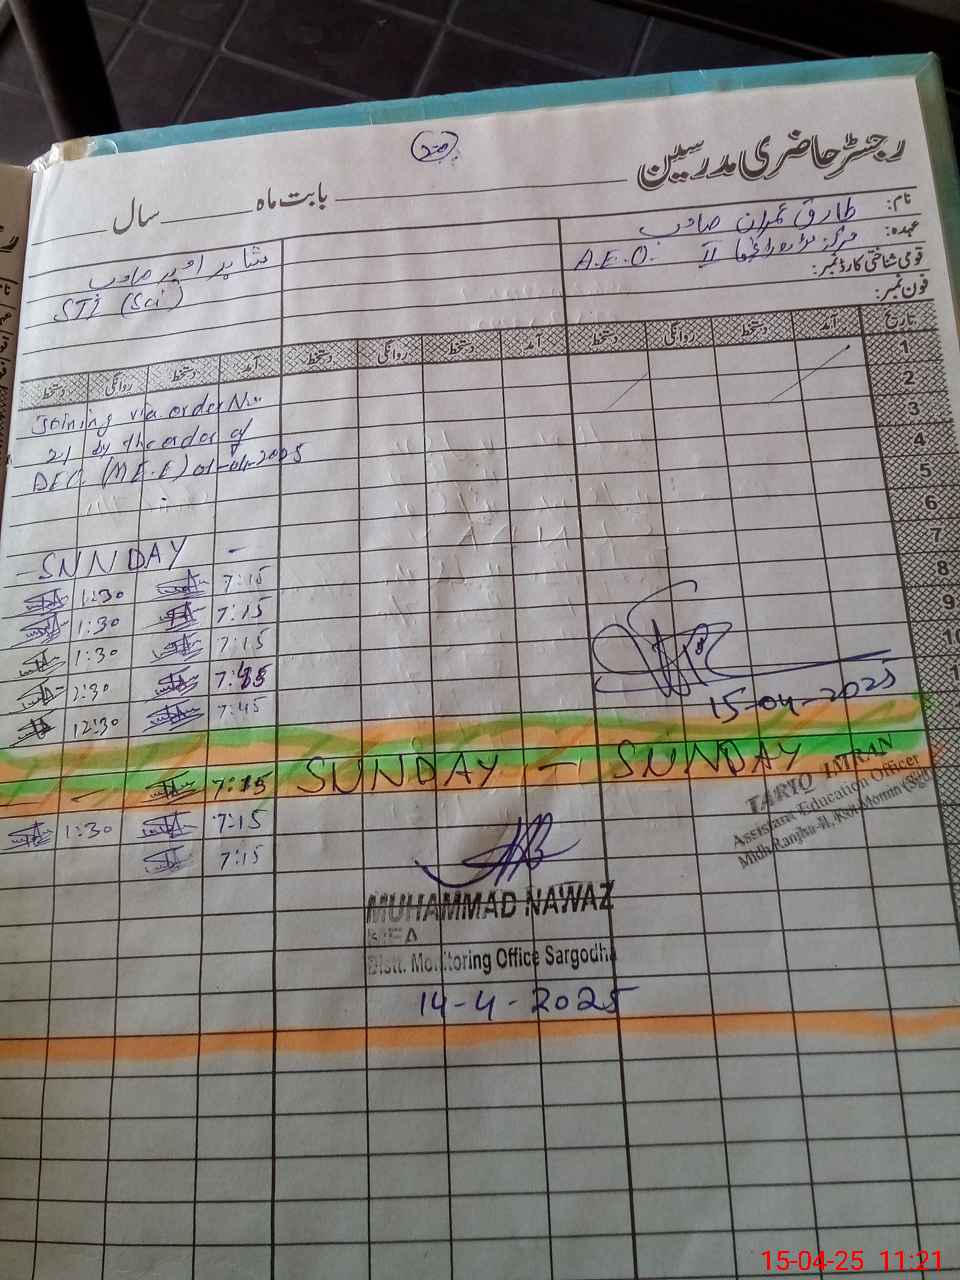 رجسٹر حاضری مدرسین
بابت ماہ ــــــــ سال ــــــــ
نام: طارق عمران صاحب
عہدہ: A.E.O. مرکز II
قومی شناختی کارڈ نمبر:
فون نمبر:
صاحب
STI (Sci)
تاریخ آمد دستخط روانگی دستخط آمد دستخط روانگی دستخط آمد دستخط روانگی دستخط
1
2
3
4
5
6
7
8
9
10
Joining via order No.
21 by the order of
DEC. (M.E.E) 01-04-2025
- SUNDAY -
7:15 1:30
7:15 1:30
7:15 1:30
7:45 12:30
15-04-2025
SUNDAY - SUNDAY
7:15
7:15 1:30
7:15
TARIQ IMRAN
Assistant Education Officer
Midh Ranjha-II, Kot Momin (Sgd)
MUHAMMAD NAWAZ
MEA
Distt. Monitoring Office Sargodha
14-4-2025
15-04-25 11:21